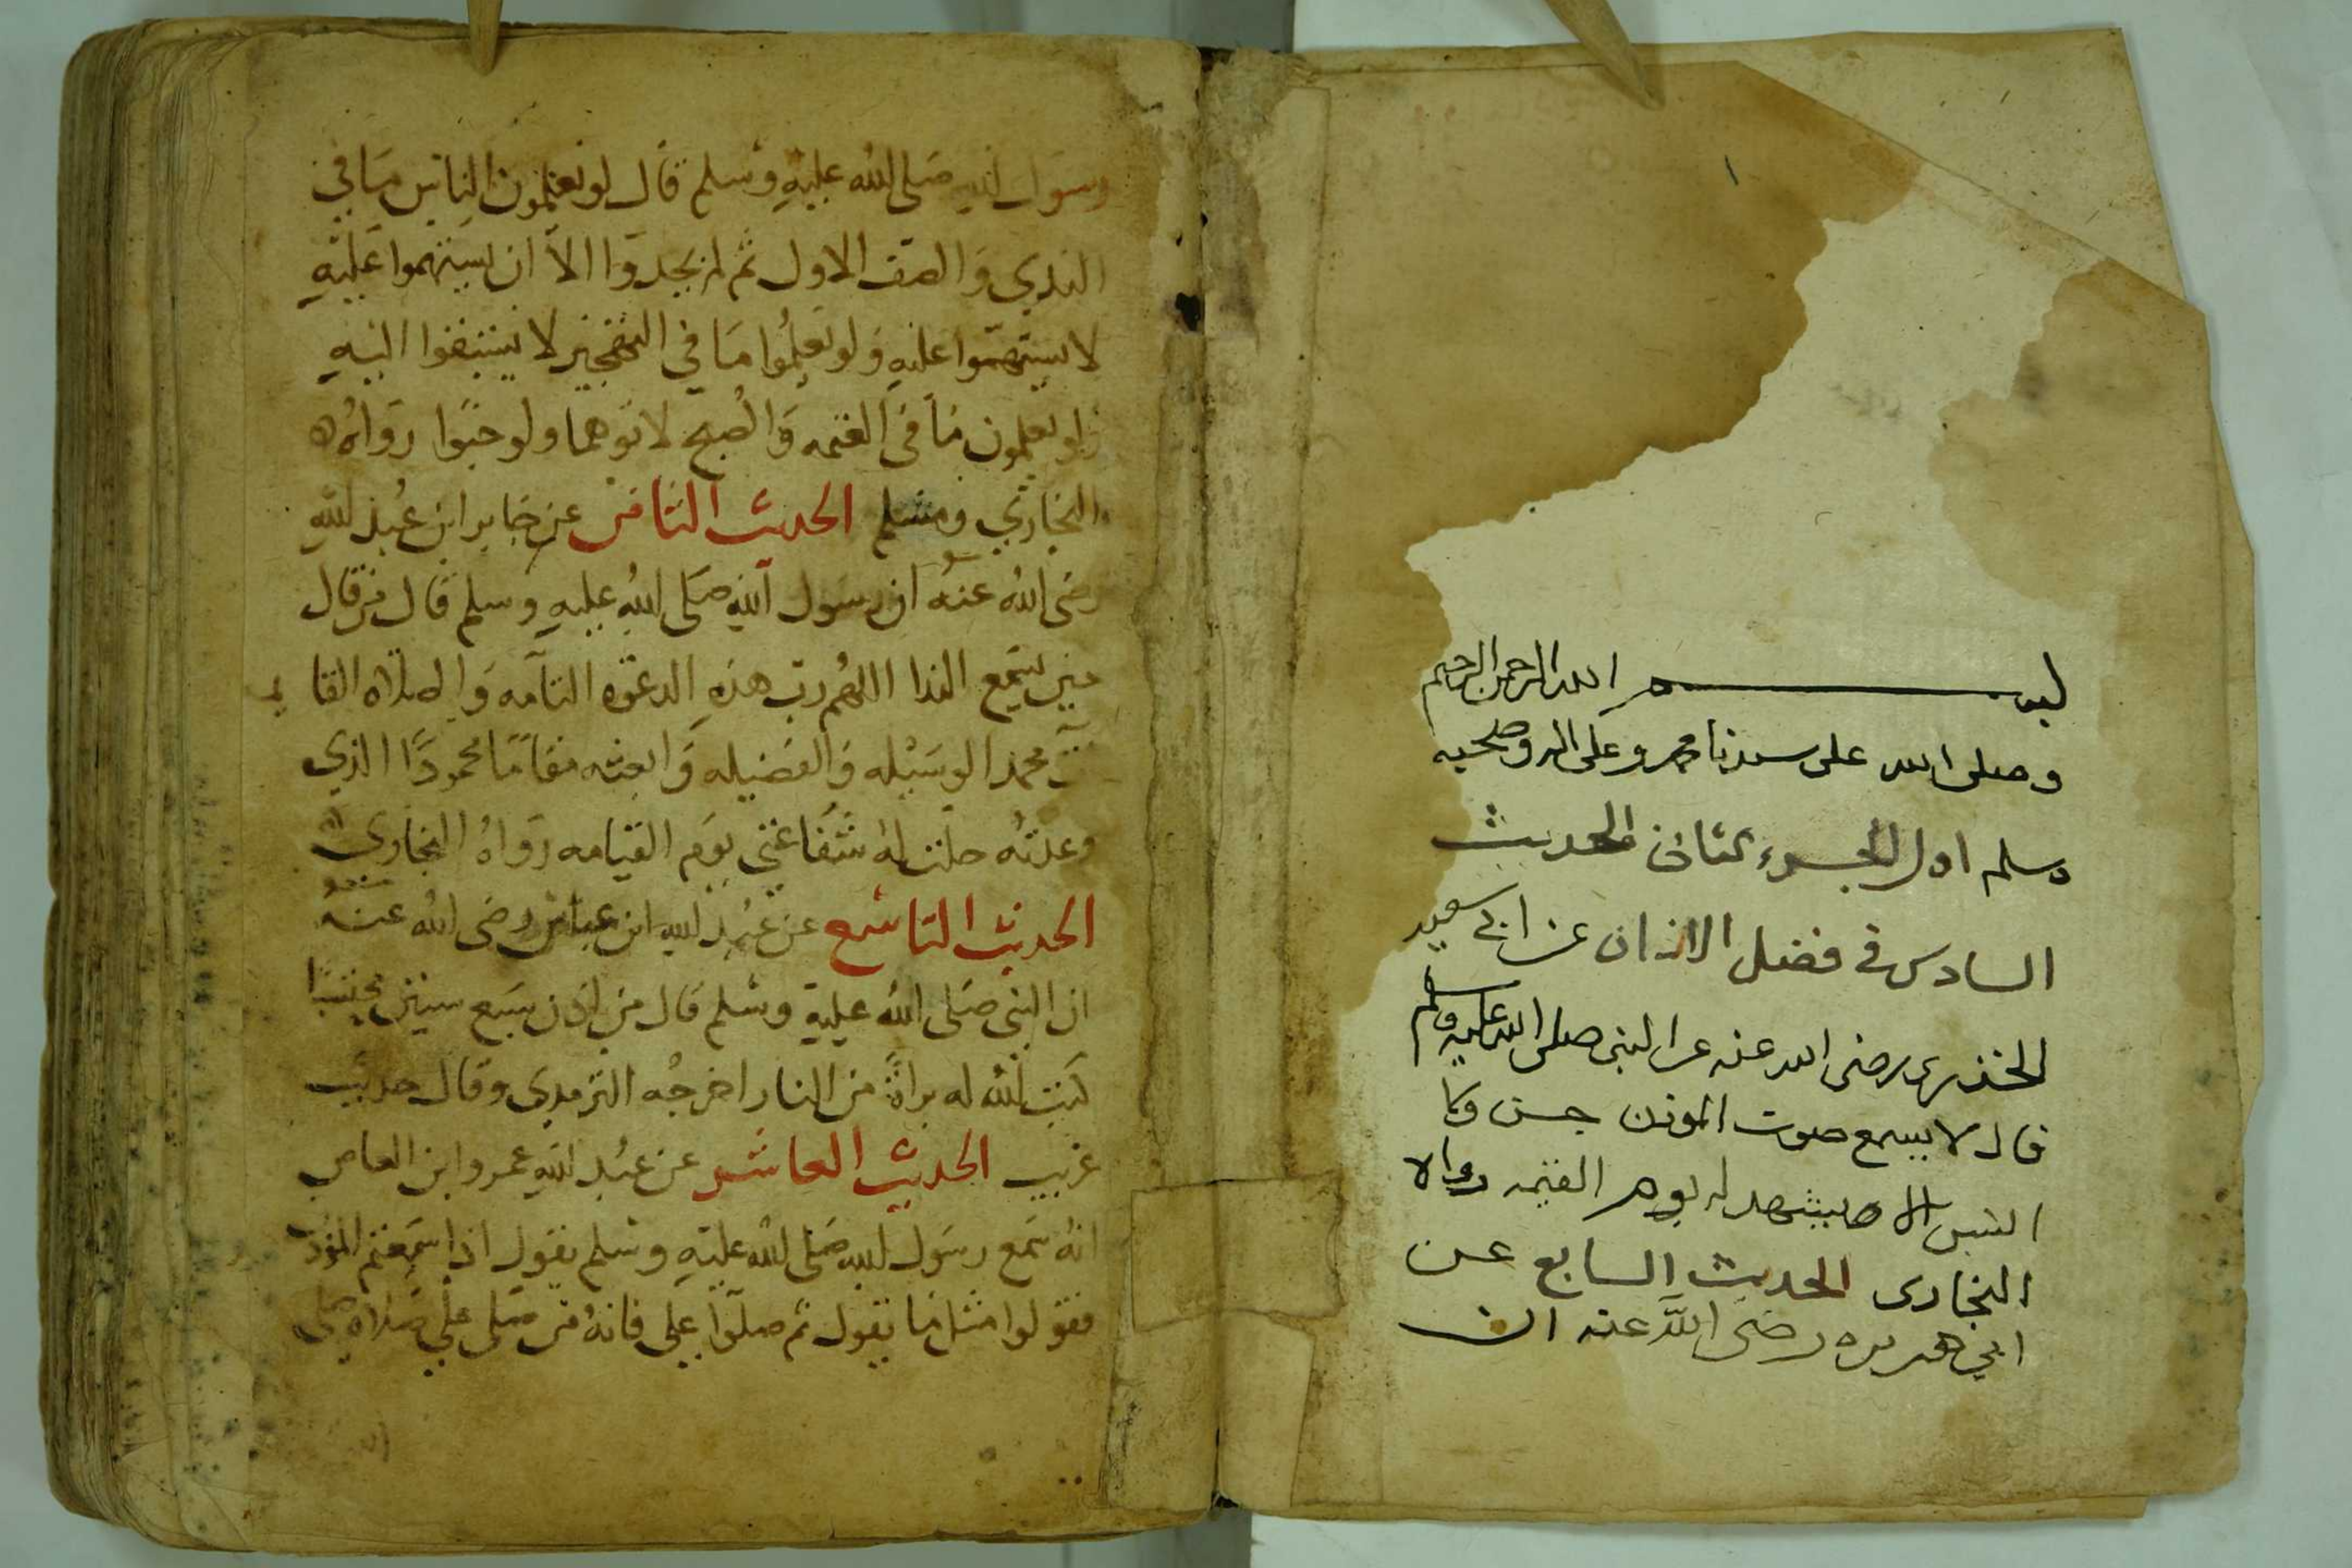 بسم الله الرحمن الرحيم
وصلى الله على سيدنا محمد وعلى اله وصحبه
وسلم اول الجزء الثانى الحديث
السادس فى فضل الاذان عن ابى سعيد
الخذرى رضى الله عنه عن النبى صلى الله عليه وسلم
قال لا يسمع صوت الموذن جن ولا
انس الا يشهد له يوم القيمه رواه
البخارى الحديث السابع عن
ابي هريره رضى الله عنه ان
رسول الله صلى الله عليه وسلم قال لو يعلمون الناس ما في
الندي والصف الاول ثم لم يجدوا الا ان يستهموا عليه
لاستهموا عليه ولو يعلموا ما في التهجير لا يستبقوا اليه
ولو يعلمون ما في العتمه والصبح لاتوهما ولو حبوا رواه
البخاري ومسلم الحديث الثامن عن جابر ابن عبد الله
رضى الله عنه ان رسول الله صلى الله عليه وسلم قال من قال
حين يسمع الندا اللهم رب هذه الدعوه التامه والصلاه القا يمه
ت محمدا الوسيله والفضيله وابعثه مقاما محمودا الذي
وعدته حلت له شفاعتي يوم القيامه رواه البخاري
الحديث التاسع عن عبد الله ابن عباس رضى الله عنه
ان النبى صلى الله عليه وسلم قال من اذن سبع سنين محتسبا
كتبت لله له براة من النار اخرجه الترمدى وقال حديث
غريب الحديث العاشر عن عبد الله عمرو ابن العاص
انه سمع رسول الله صلى الله عليه وسلم يقول اذا سمعتم الموذن
فقولوا مثل ما يقول ثم صلوا علي فانه من صلى علي صلاه صلى